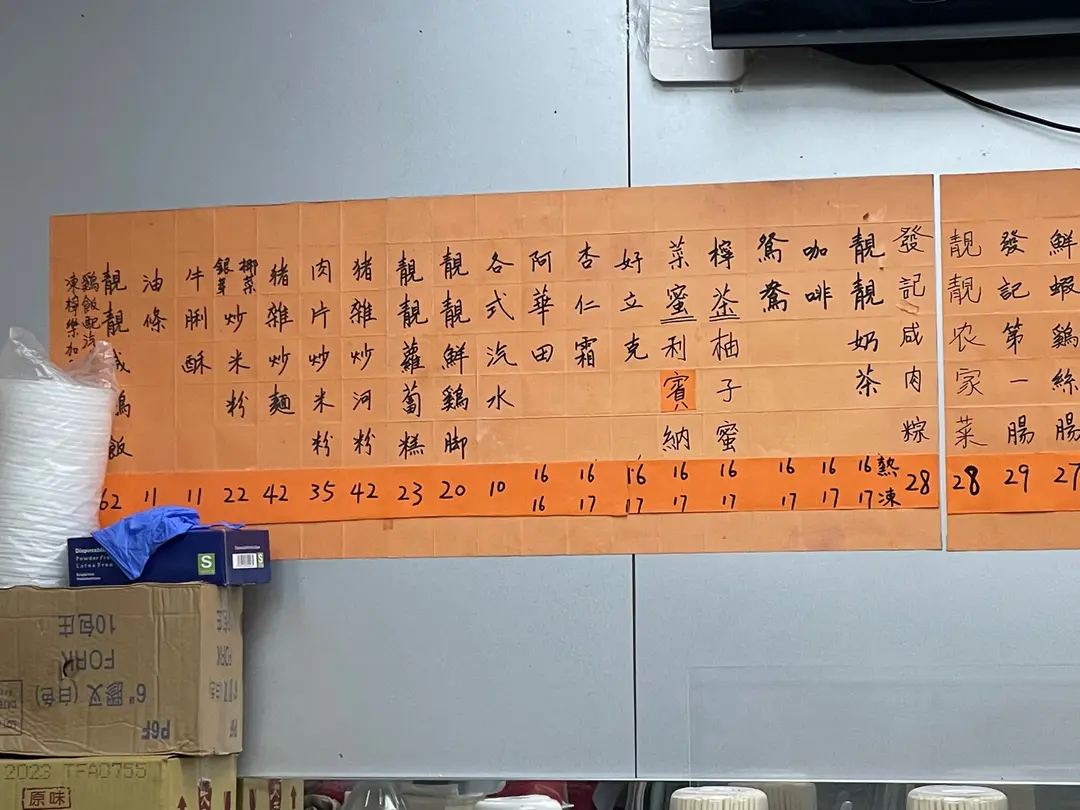 鮮蝦鷄絲腸 27
發記第一腸 29
靚靚农家菜 28
發記咸肉粽 28
熱
凍
靚靚奶茶 16 17
咖啡 16 17
鴛鴦 16 17
檸茶柚子蜜 16 17
菜蜜利賓納 16 17
好立克 16 17
杏仁霜 16 17
阿華田 16 16
各式汽水 10
靚靚鮮鷄脚 20
靚靚蘿蔔糕 23
猪雜炒河粉 42
肉片炒米粉 35
猪雜炒麵 42
椰菜
銀芽炒米粉 22
牛脷酥 11
油條 11
靚靚咸鷄飯 62
鷄飯配汽
凍檸樂加
Disposable
Powder Free
Latex Free
S
S
10包庄
FORK
6" 膠叉 (白色)
P6F
2023 TFA0755
原味